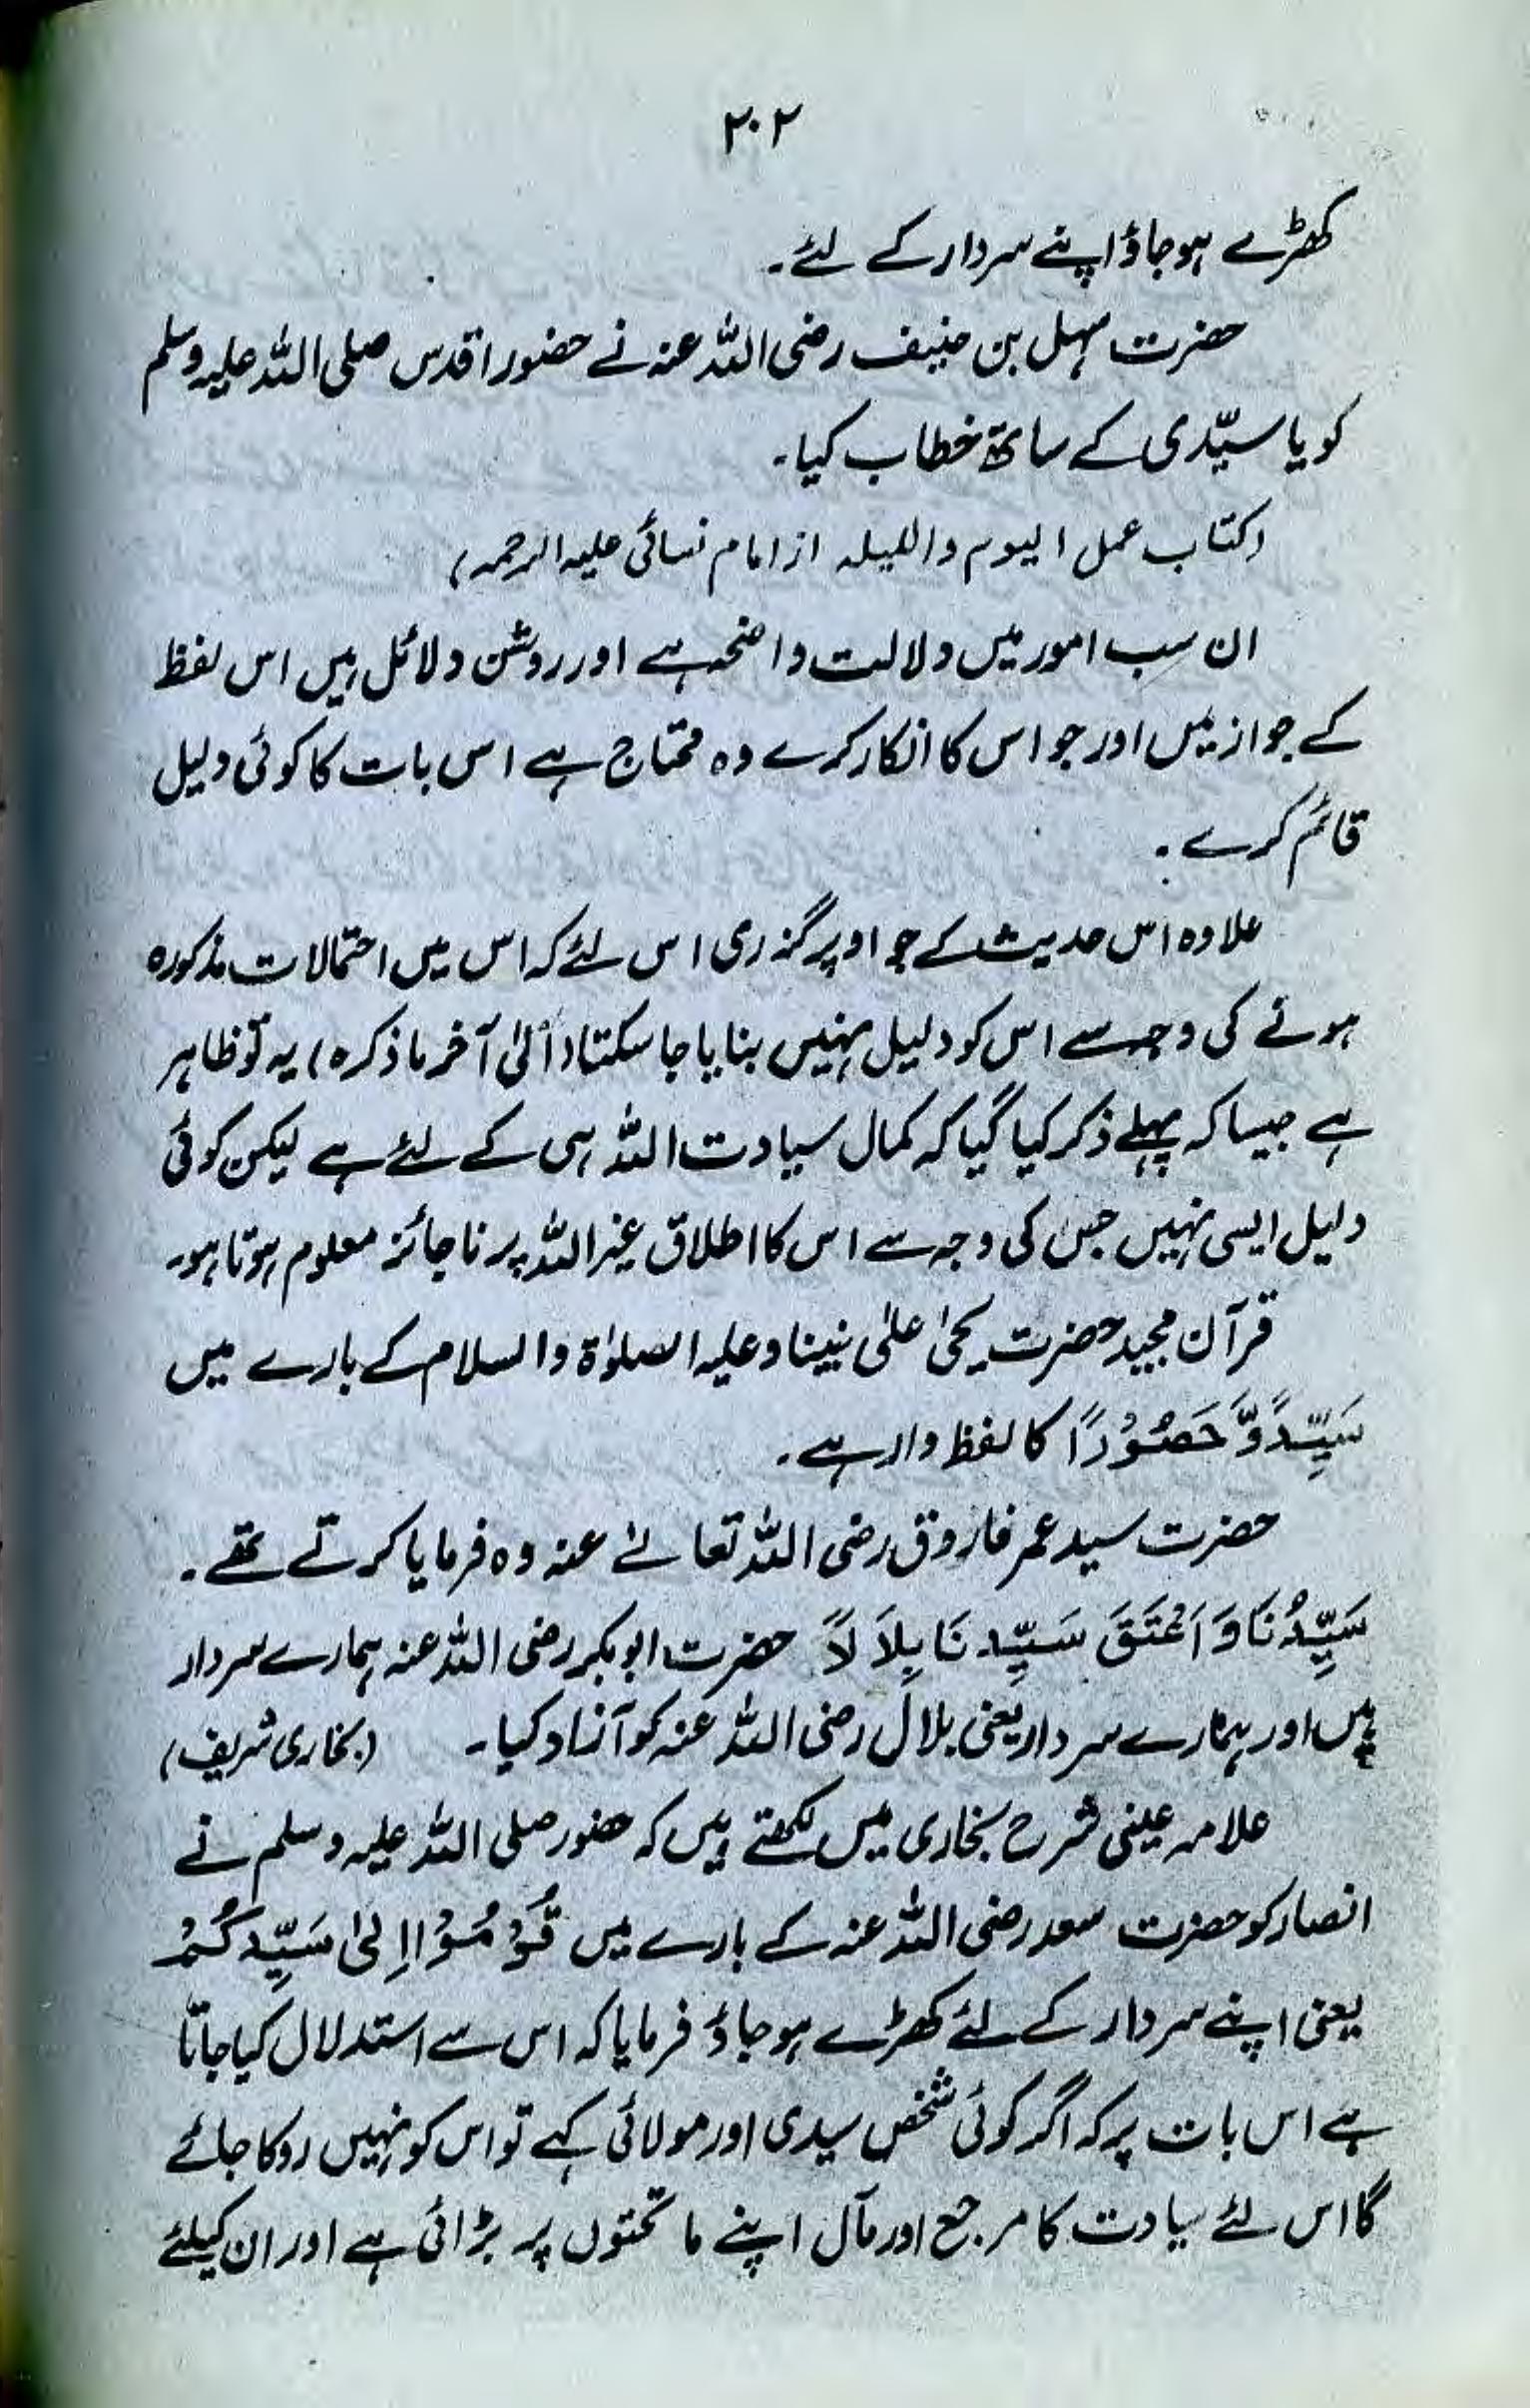 ۲۰۲
کھڑے ہوجاؤ اپنے سردار کے لئے۔
حضرت سہل بن حنیف رضی اللہ عنہ نے حضور اقدس صلی اللہ علیہ وسلم
کو یا سیّدی کے ساتھ خطاب کیا۔
(کتاب عمل الیوم واللیلہ از امام نسائی علیہ الرحمہ)
ان سب امور میں دلالت واضحہ ہے اور روشن دلائل ہیں اس لفظ
کے جواز میں اور جو اس کا انکار کرے وہ محتاج ہے اس بات کا کوئی دلیل
قائم کرے۔
علاوہ اس حدیث کے جو اوپر گذری اس لئے کہ اس میں احتمالات مذکورہ
ہونے کی وجہ سے اس کو دلیل نہیں بنایا جا سکتا (الیٰ آخر ما ذکرہ) یہ تو ظاہر
ہے جیسا کہ پہلے ذکر کیا گیا کہ کمال سیادت اللہ ہی کے لئے ہے لیکن کوئی
دلیل ایسی نہیں جس کی وجہ سے اس کا اطلاق غیر اللہ پر ناجائز معلوم ہوتا ہو۔
قرآن مجید حضرت یحیٰ علیٰ نبینا وعلیہ الصلوٰۃ والسلام کے بارے میں
سَیِّدًا وَّحَصُوْرًا کا لفظ وارد ہے۔
حضرت سید عمر فاروق رضی اللہ تعالےٰ عنہ وہ فرمایا کرتے تھے۔
سَیِّدُنَا وَ اَعْتَقَ سَیِّدنَا بِلاَ لاً حضرت ابوبکر رضی اللہ عنہ ہمارے سردار
ہیں اور ہمارے سردار یعنی بلال رضی اللہ عنہ کو آزاد کیا۔ (بخاری شریف)
علامہ عینی شرح بخاری میں لکھتے ہیں کہ حضور صلی اللہ علیہ وسلم نے
انصار کو حضرت سعد رضی اللہ عنہ کے بارے میں قُوْمُوْا اِلیٰ سَیِّدِکُمْ
یعنی اپنے سردار کے لئے کھڑے ہوجاؤ فرمایا کہ اس سے استدلال کیا جاتا
ہے اس بات پر کہ اگر کوئی شخص سیدی اور مولائی کہے تو اس کو نہیں روکا جائے
گا اس لئے سیادت کا مرجع اور مآل اپنے ما تحتوں پر بڑائی ہے اور ان کیلئے